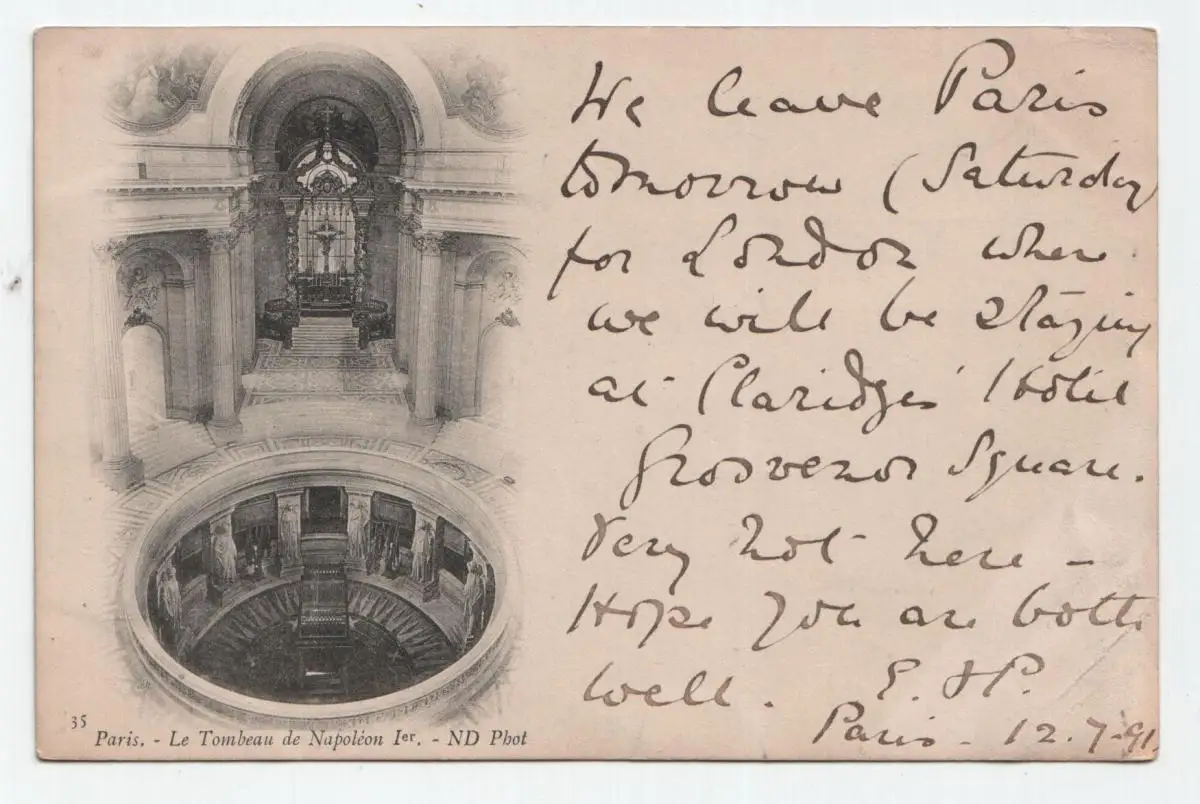 We leave Paris
tomorrow (Saturday)
for London where
we will be staying
at Claridges' Hotel
Grosvenor Square.
Very hot here -
Hope you are both
well.
Paris - 12.7-91.
35
Paris. - Le Tombeau de Napoléon Ier. - ND Phot